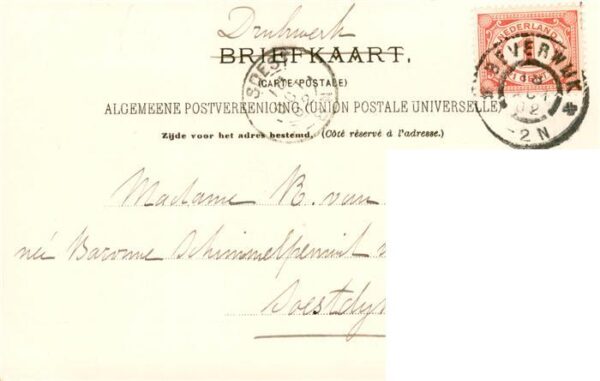 Drukwerk
BRIEFKAART.
(CARTE POSTALE)
ALGEMEENE POSTVEREENIGING (UNION POSTALE UNIVERSELLE)
Zijde voor het adres bestemd. (Côté réservé à l'adresse.)
NEDERLAND
BEVERWIJK
2 N
SOEST
Madame B. van
née Baronne Schimmelpennin
Soestdy